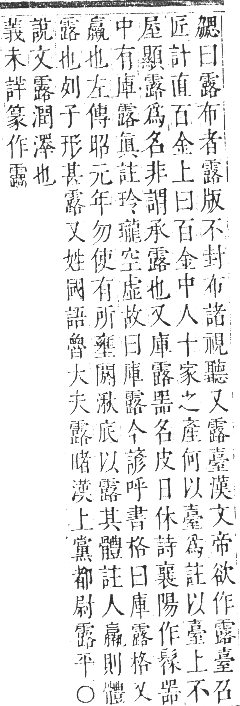 勰曰露布者露版不封布諸視聽又露臺漢文帝欲作露臺召
匠計直百金上曰百金中人十家之產何以臺爲註以臺上不
屋顯露爲名非謂承露也又庫露器名皮日休詩襄陽作髹器
中有庫露眞註玲瓏空虛故曰庫露今諺呼書格曰庫露格又
羸也左傳昭元年勿使有所壅閼湫底以露其體註人羸則體
露也列子形甚露又姓國語魯大夫露睹漢上黨都尉露平○
說文露潤澤也
義未詳篆作露